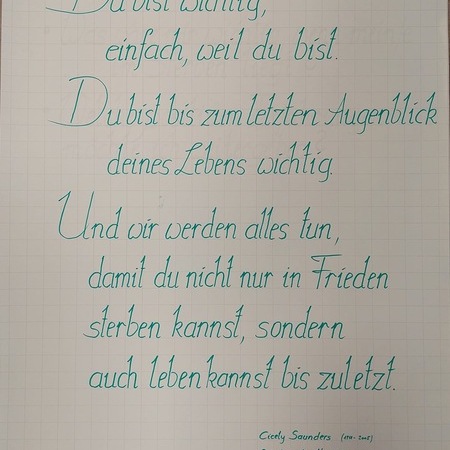 Du bist wichtig,
einfach, weil du bist.
Du bist bis zum letzten Augenblick
deines Lebens wichtig.
Und wir werden alles tun,
damit du nicht nur in Frieden
sterben kannst, sondern
auch leben kannst bis zuletzt.
Cicely Saunders (1918-2005)